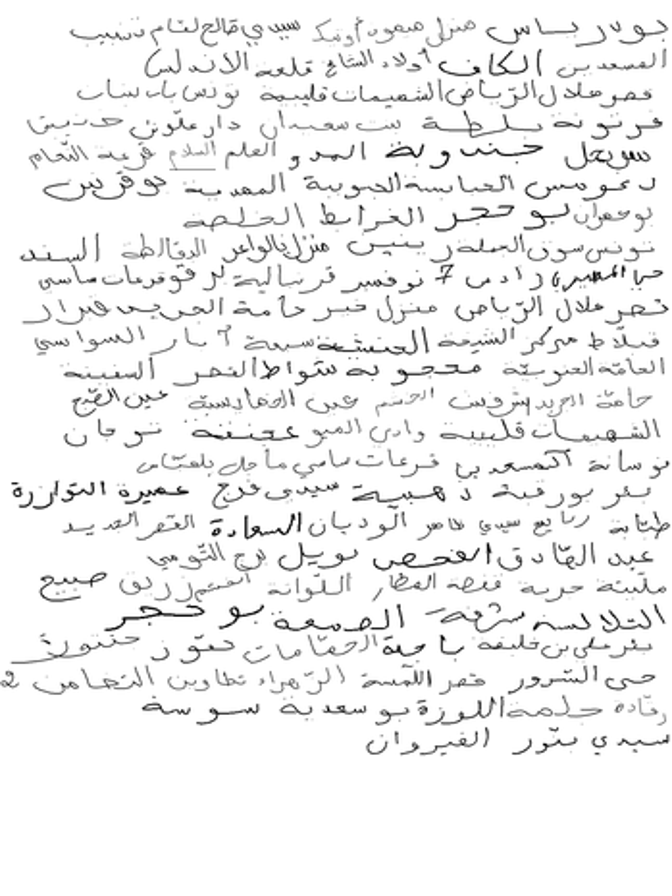 بودرياس منزل ميمون أونيك سيدي صالح لتام نصيب
المسعدين الكاف أولاد الشامخ قلعة الأندلس
قصر هلال الرياض الشهيمات قليبية تونس باب بنات
فرنونة بلطة بئت سعيدان دار علوش
سويحل جندوبة المدو العلم السلام قرعة النعام
دعويس العبابسة الجنوبية المهدية بوقرنين
بوجمران بو حجر الخرايط الخليصة
تونس سوق الجملة رينين منزل بالواعر الدقالطة السند
حي المصيرين رادس 7 نوفمبر قرنبالية قرعات ساسي
قصر هلال الرياض منزل خير حامة الجريد
فلاط مركز الشيحية الحنشة سبعة آبار السواسي
العامة الجنوبية محجوبة شواط القصر السفينة
حامة الجريد الخيم عين الخمايسية عين الصبح
الشهيمات قليبية وادي الميو عجنقة نرحان
نوسانة المسعدين قرعات ساسي ماجل بلعباس
بئر بورقبة دهيبة سيدي فرج عميرة التوازرة
طبابة ربايع سيدي ظاهر الوديان السعادة القصر الجديد
عبد الصادق الفحص نويل برج التومي
ملينة حرية قفصة القطار اللوانة الخيم صبيح
التلالسة شرفة الصمعة بو حجر
بئر علي بن خليفة باجة الحمامات تبوز
حي السرور قصر اللمسة الزهراء تطاوين التضامن 2
رقادة جلمة اللوزة بو سعدية سوسة
سيدي بنور القيروان